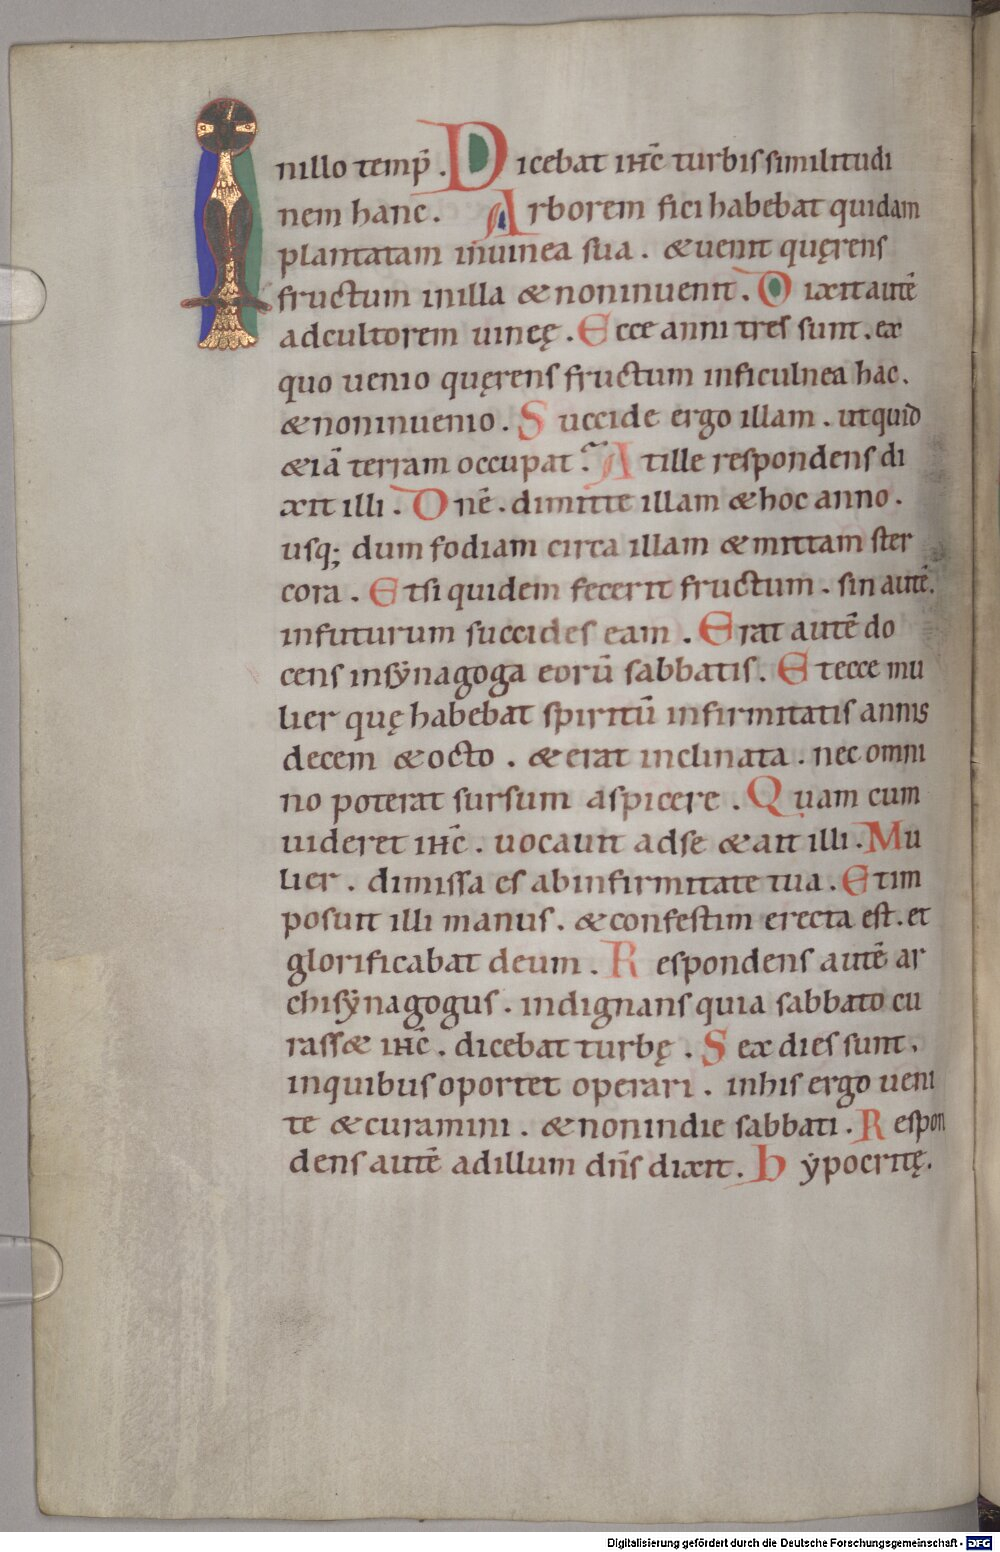 Inillo temp̄. Dicebat ih̄c turbis similitudi
nem hanc. Arborem fici habebat quidam
plantatam inuinea sua. & uenit quęrens
fructum inilla & noninuenit. Dixit autē
adcultorem uineę. Ecce anni tres sunt. ex
quo uenio quęrens fructum inficulnea hac.
& noninuenio. Succide ergo illam. utquid
& iā terram occupat? At ille respondens di
xit illi. Dnē. dimitte illam & hoc anno.
usq; dum fodiam circa illam & mittam ster
cora. Et si quidem fecerit fructum. sin autē.
infuturum succides eam. Erat autē do
cens insẏnagoga eorū sabbatis. Et ecce mu
lier quę habebat spiritū infirmitatis annis
decem & octo. & erat inclinata. nec omni
no poterat sursum aspicere. Quam cum
uideret ih̄c. uocauit adse & ait illi. Mu
lier. dimissa es abinfirmitate tua. Et im
posuit illi manus. & confestim erecta est. et
glorificabat deum. Respondens autē ar
chisẏnagogus. indignans quia sabbato cu
rass& ih̄c. dicebat turbę. Sex dies sunt.
inquibus oportet operari. inhis ergo ueni
te & curamini. & nonindie sabbati. Respon
dens autē adillum dn̄s dixit. hẏpocritę.
Digitalisierung gefördert durch die Deutsche Forschungsgemeinschaft - DFG